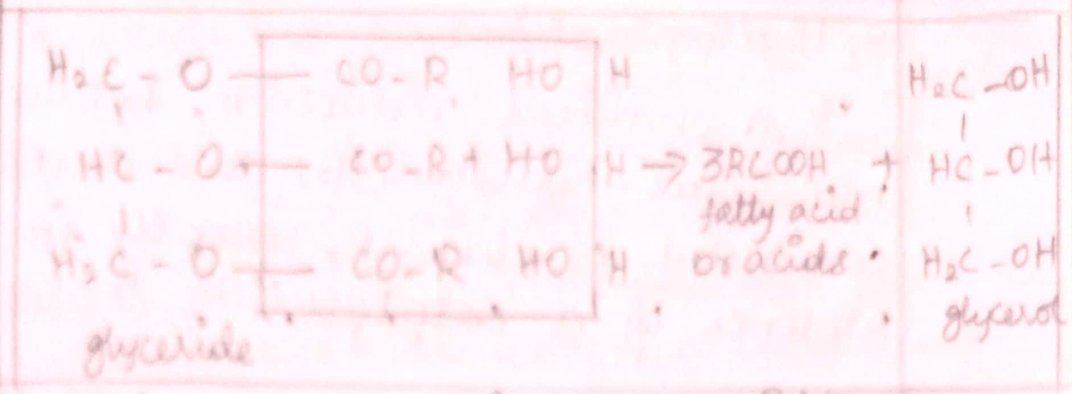 H₂C - O — CO-R HO H H₂C -OH
HC - O — CO-R + HO H → 3RCOOH + HC-OH
fatty acid
H₂C - O — CO-R HO H or acids H₂C -OH
glyceride glycerol